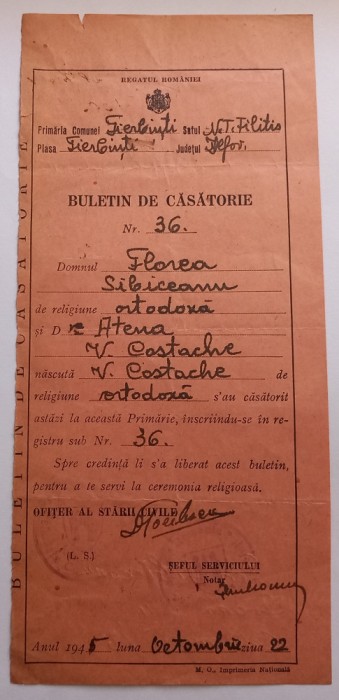 REGATUL ROMÂNIEI
Primăria Comunei Fierbinți Satul N.T. Filitis
Plasa Fierbinți Județul Ilfov.
BULETIN DE CĂSĂTORIE
Nr. 36.
Domnul Florea
Sibiceanu
de religiune ortodoxă
și D ra Atena
V. Costache
născută V. Costache de
religiune ortodoxă s'au căsătorit
astăzi la această Primărie, inscriindu-se în re-
gistru sub Nr. 36.
Spre credință li s'a liberat acest buletin,
pentru a te servi la ceremonia religioasă.
OFIȚER AL STĂRII CIVILE
(L. S.)
ȘEFUL SERVICIULUI
Notar
Anul 1945 luna Octombrie ziua 22
M. O., Imprimeria Națională
BULETIN DE CĂSĂTORIE